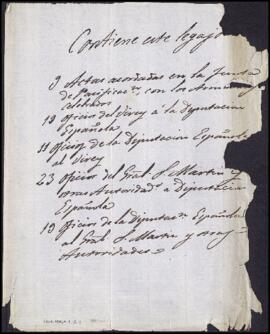 Contiene este legajo
9 Actas acordadas en la Junta
de Pacificon. con los
celebrados
19 oficios del Virey á la Diputacion
Española
11 oficios de la Diputacion Española
al Virey
23 oficios del Gral. Sn. Martin y
otras Autoridads. a Diputacion
Española
19 Oficios de la Diputacn. Española
al Gral. Sn. Martin y otras
Autoridades